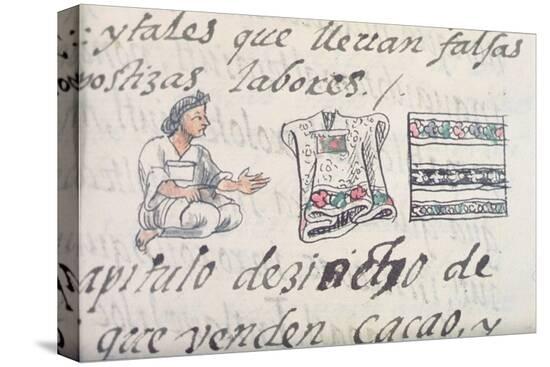 : ytales que lleuan falsas
postizas labores. /
apitulo dezi ocho de
que venden Cacao, y